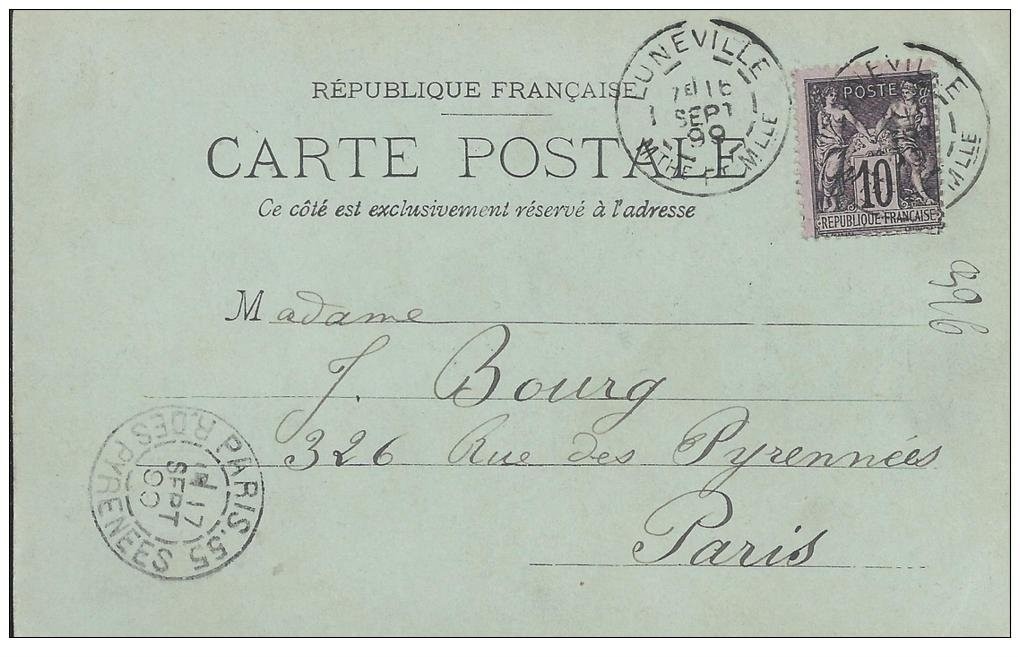 RÉPUBLIQUE FRANÇAISE
CARTE POSTALE
Ce côté est exclusivement réservé à l'adresse
LUNEVILLE
16
SEPT
99
MTHE-ET-MLLE
POSTES
10
REPUBLIQUE FRANÇAISE
Madame
J. Bourg
326 Rue des Pyrennées
Paris
PARIS.55
R. DES PYRENEES
17
SEPT
99